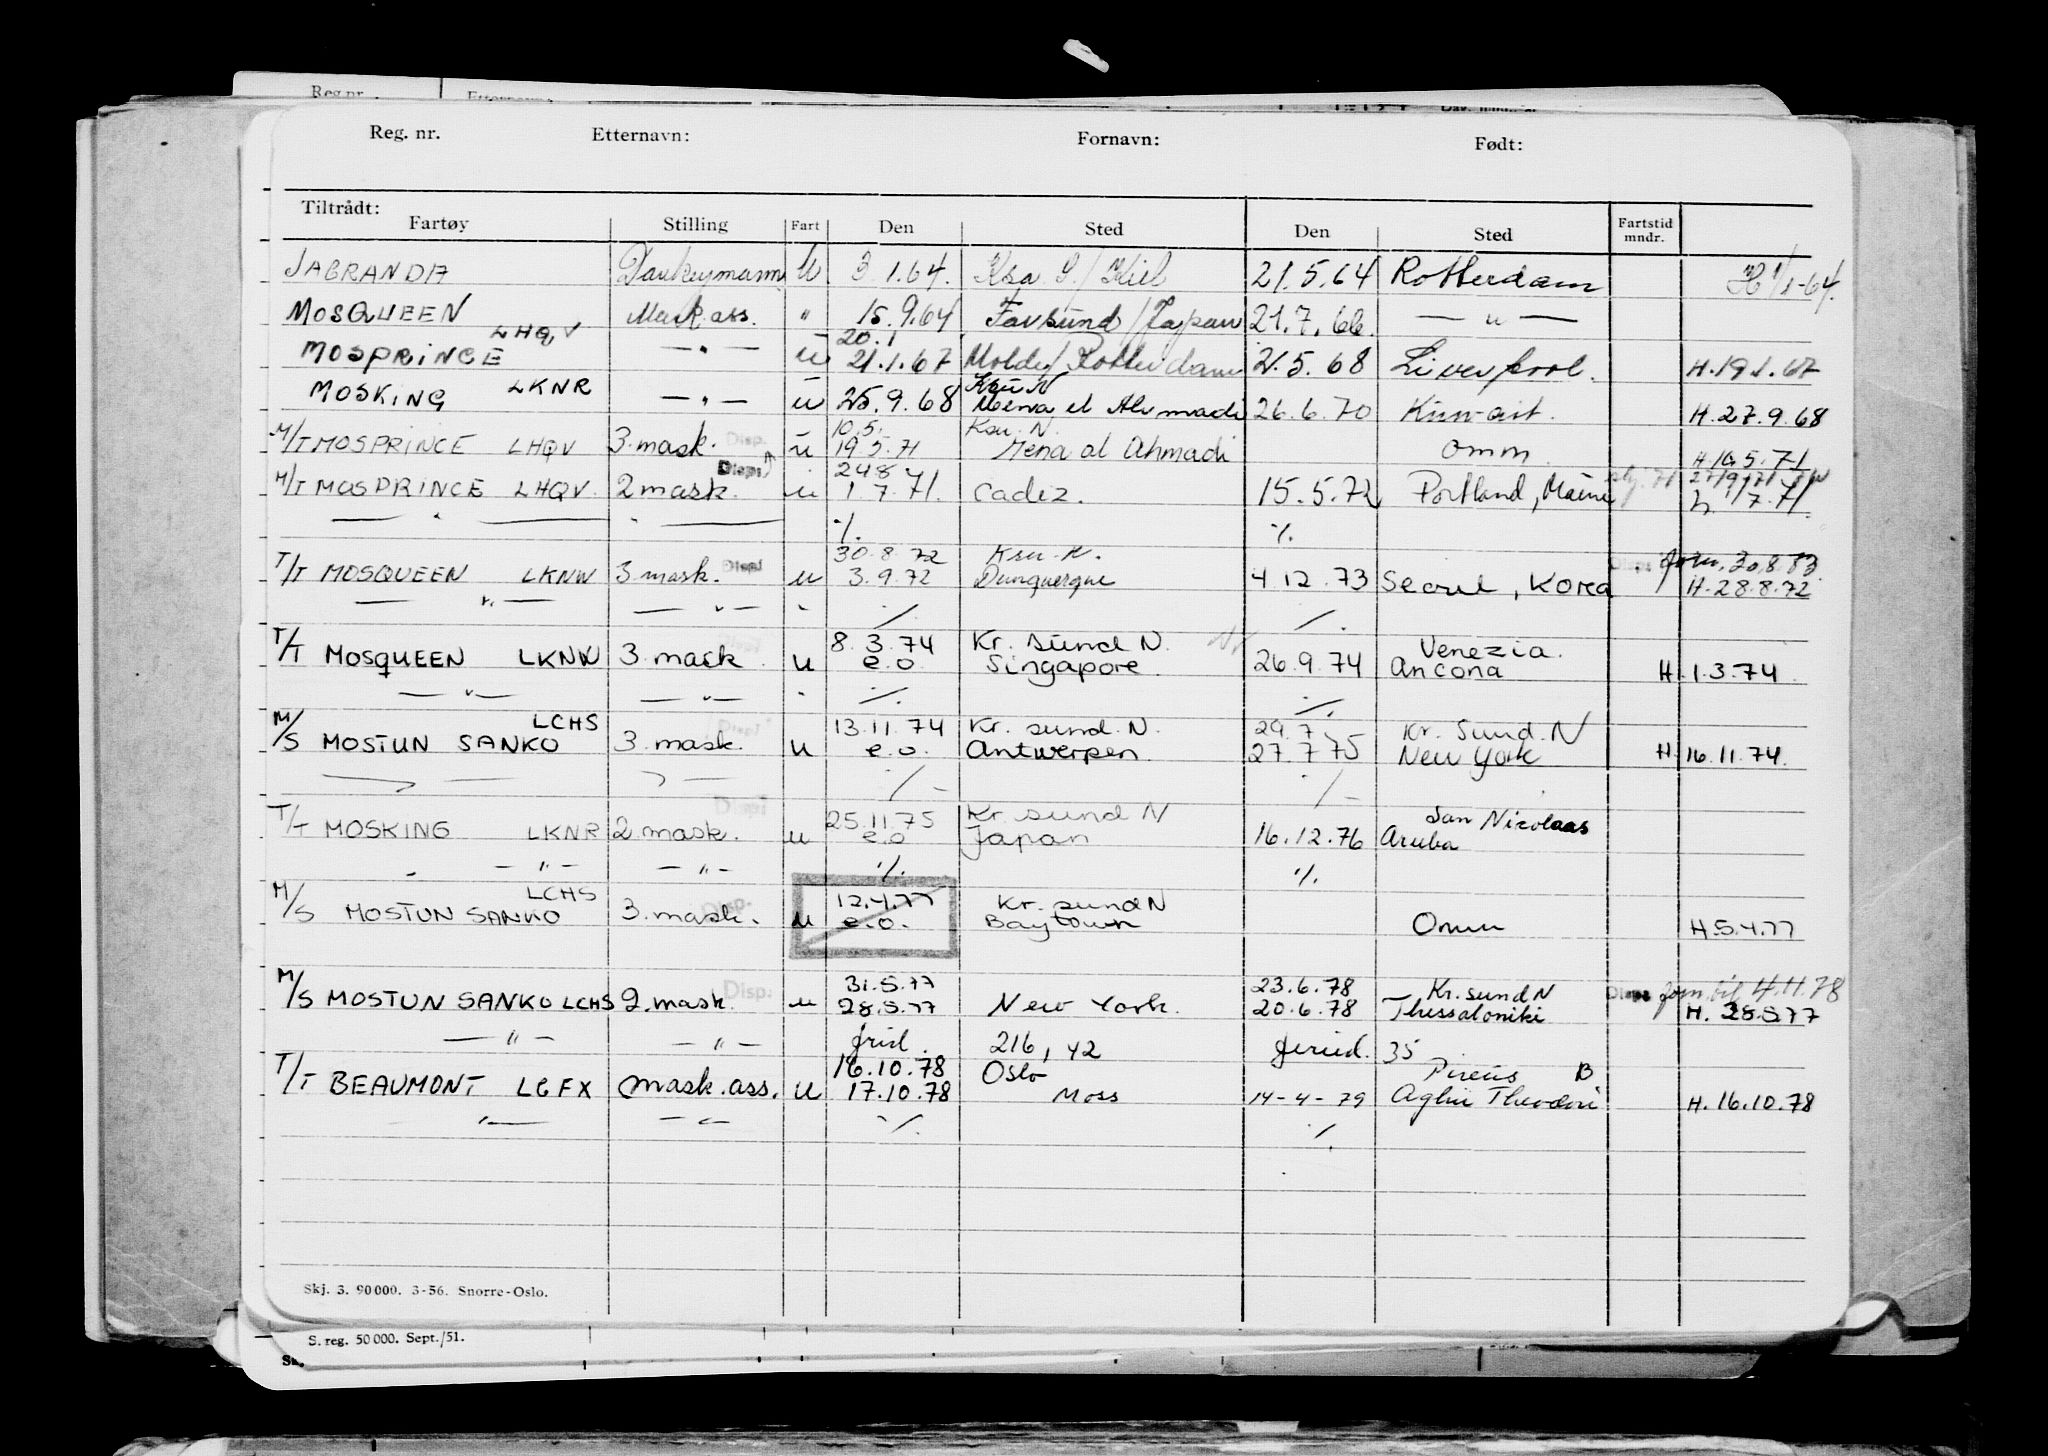 Reg. nr. Etternavn: Fornavn: Født:
Tiltrådt:
Fartøy Stilling Fart Den Sted Den Sted Fartstid mndr.
JABRANDA Dankeymann U 3.1.64. Ksa S./Kiel 21.5.64 Rotterdam H 1/1-64.
MOSQUEEN Mask.ass. " 15.9.64 /Japan 21.7.66. — " —
LHQV 20.1
MOSPRINCE — " — u 21.1.67 Molde/Rotterdam 21.5.68 Liverpool. H.19.1.67
Ksu N
MOSKING LKNR — " — u 25.9.68 Mena el Ahmadi 26.6.70 H.27.9.68
10.5. Ksu. N.
M/T MOSPRINCE LHQV 3.mask. Disp. u 19.5.71 Mena al Ahmadi Omm. H.10.5.71
Disp. 24.8.
M/T MOSPRINCE LHQV. 2mask. u 1.7.71. Cadiz. 15.5.72 Portland, Maine h 1/7.71.
— " — " — ./. ./.
30.8.72 Ksu. N.
T/T MOSQUEEN LKNW 3.mask. Disp u 3.9.72 Dunquerque 4.12.73 Seoul, Korea Disp 30.8.83 H.28.8.72
— " — — " — " ./. ./.
8.3.74 Kr. sund N. Venezia.
T/T MOSQUEEN LKNW 3.mask u e.o. Singapore. 26.9.74 Ancona H.1.3.74.
— " — — " — " ./. ./.
LCHS 13.11.74 Kr. sund. N. 29.7 Kr. Sund. N
M/S MOSTUN SANKO 3.mask. u e.o. Antwerpen. 27.7.75 New York H.16.11.74.
— " — " — ./- ./-
25.11.75 Kr. sund N San Nicolaas
T/T MOSKING LKNR 2.mask. u e.o Japan 16.12.76 Aruba
— " — — " — ./. ./.
LCHS 12.4.77 Kr. sund N
M/S MOSTUN SANKO 3.mask. Disp. u e.o. Baytown Omm H.5.4.77
31.5.77 23.6.78 Kr. sund N
M/S MOSTUN SANKO LCHS 2.mask. Disp. u 28.5.77 New York. 20.6.78 Thessaloniki Disp forn.til 4.11.78 H. 28.5.77
— " — — " — 216, 42 35
16.10.78 Oslo Pireus B
T/T BEAUMONT LGFX mask.ass. u 17.10.78 Moss 14-4-79 Aghii Theodori H.16.10.78
— " — — " — ./. ./.
Skj. 3. 90000. 3-56. Snorre-Oslo.
S. reg. 50000. Sept./51.